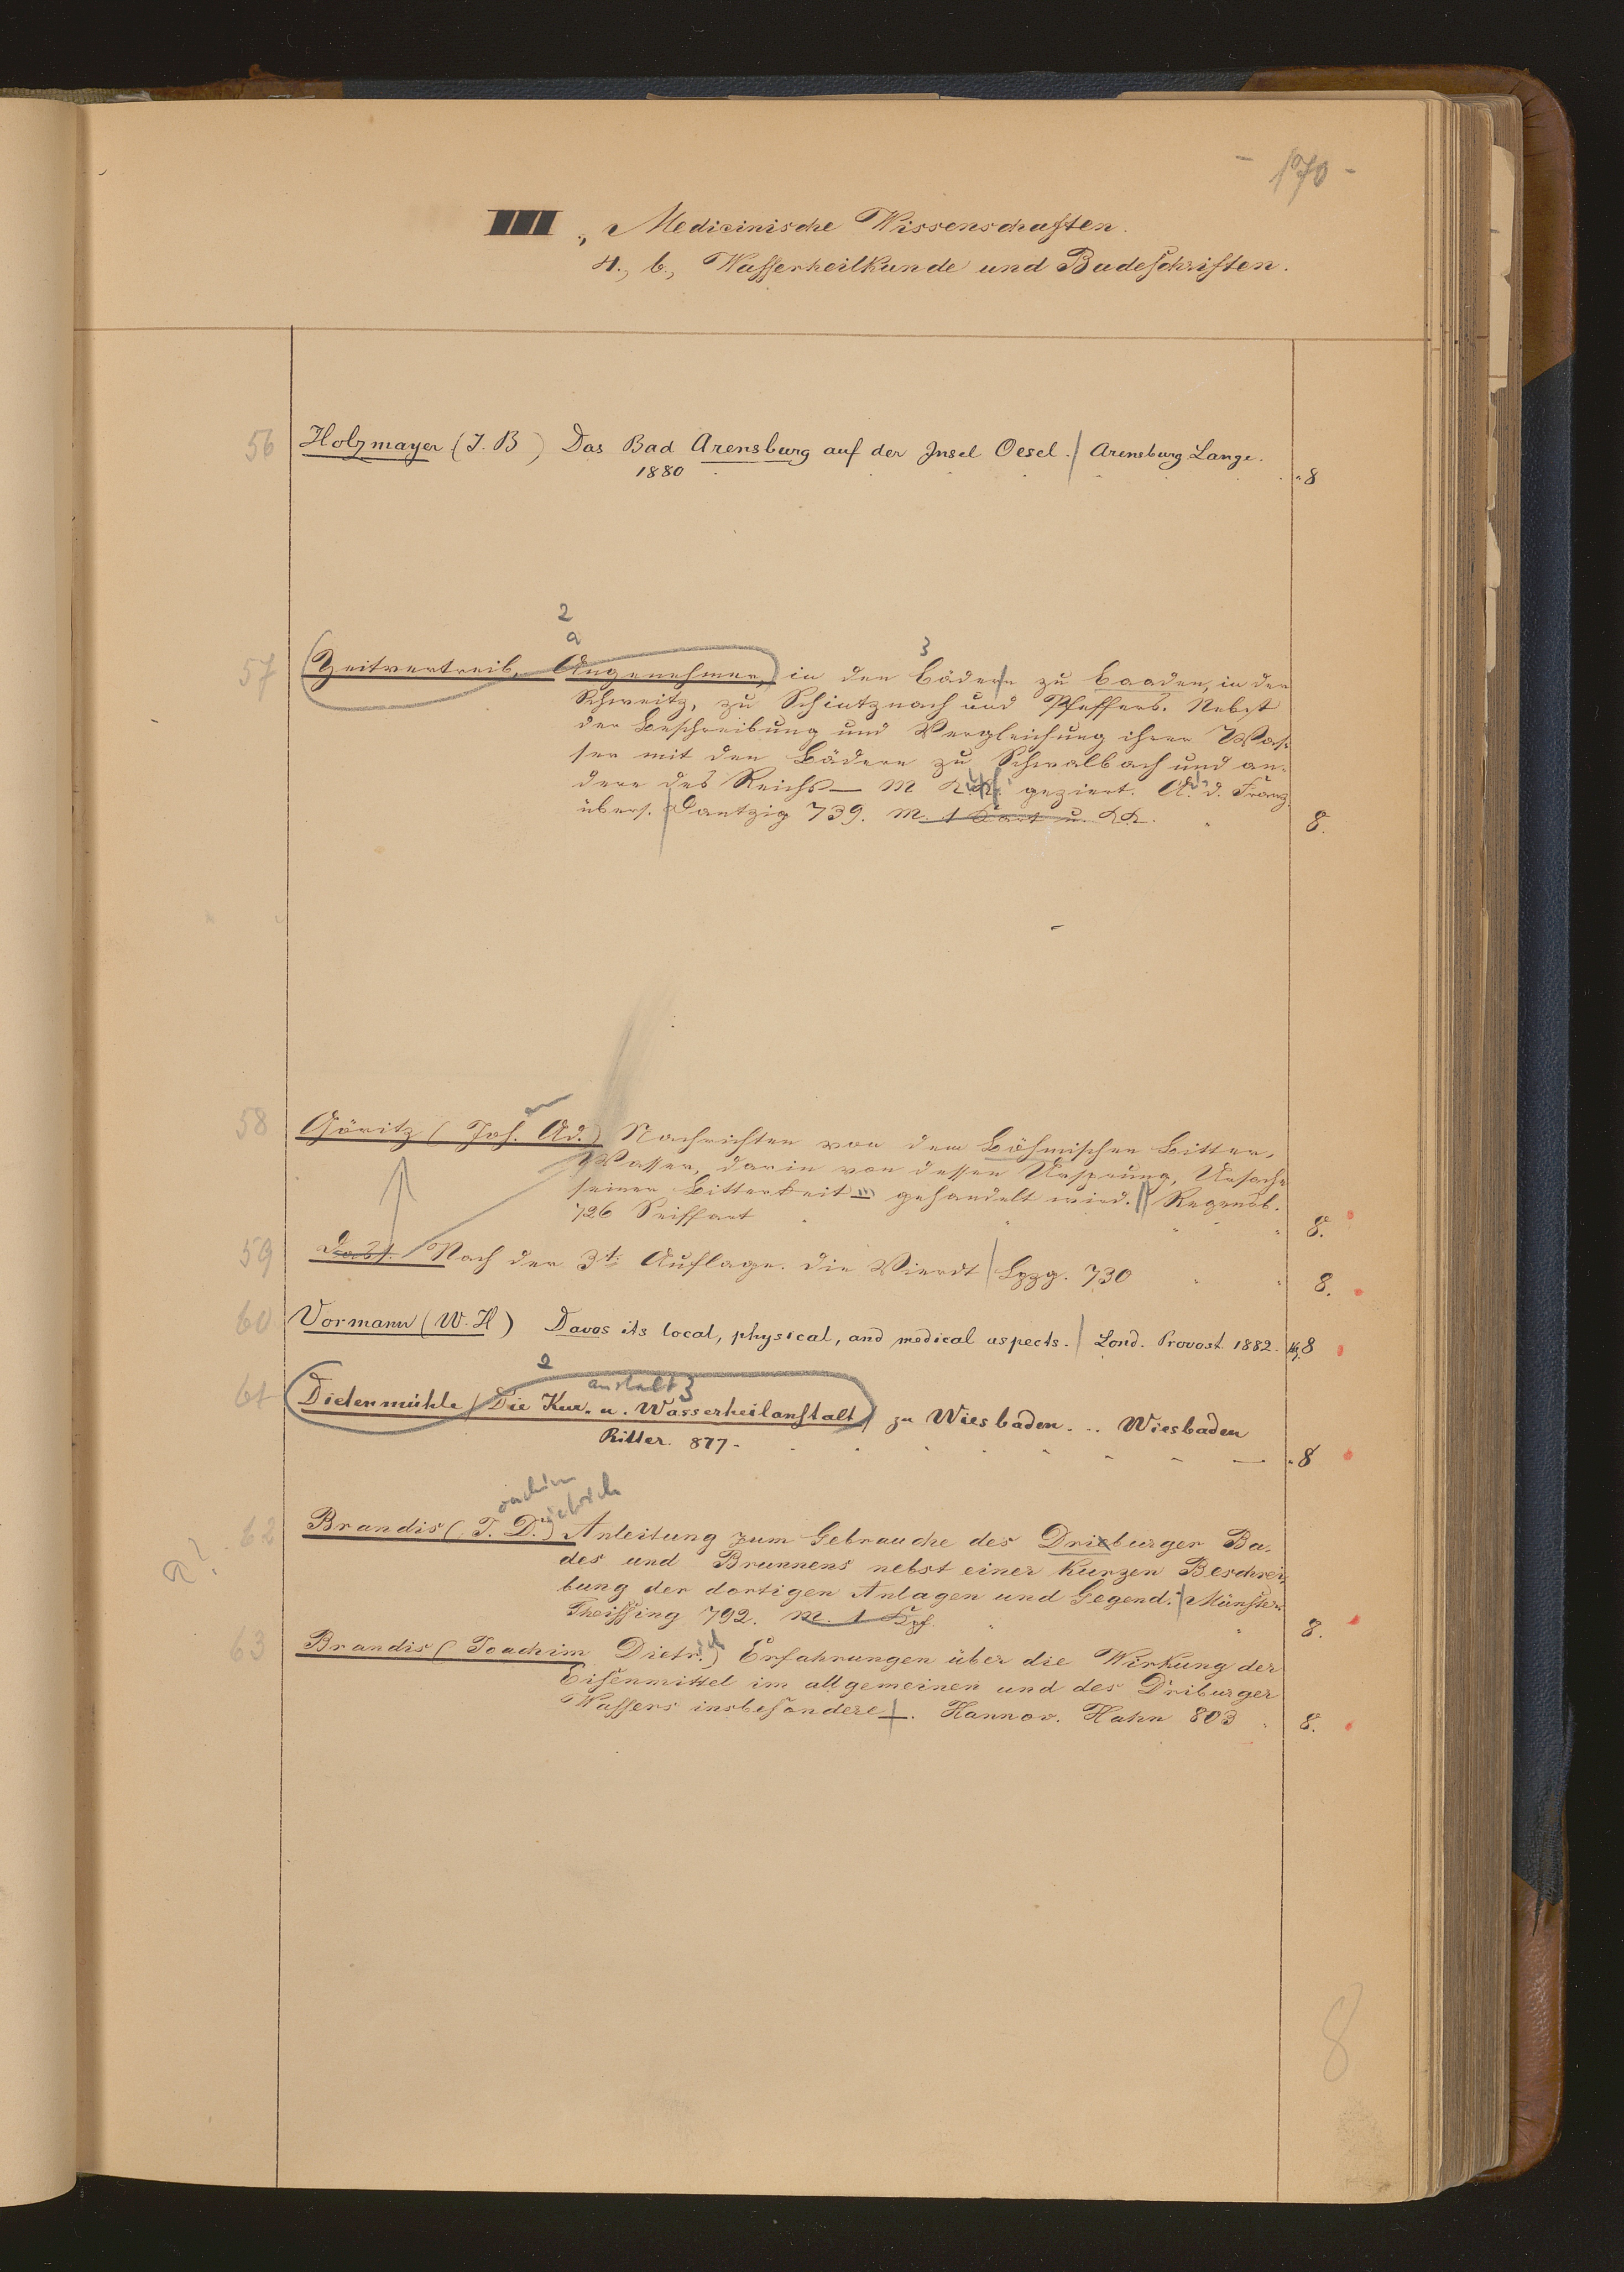 - 170 -
III., Medicinische Wissenschaften.
4., b., Wasserheilkunde und Badeschriften.
56 Holzmayer (J. B) Das Bad Arensburg auf der Insel Oesel. / Arensburg Lange.
1880 8
2
a 3
57 (Zeitvertreib, Angenehmer,) in den Bädern zu Baaden, in der
Schweitz, zu Schintznach und Pfeffers. Nebst
der Beschreibung und Vergleichung ihrer Was-
ser mit den Bädern zu Schwalbach und an-
dere des Reichs — M geziert. A. d. Franz.
übers. Dantzig 739. M. 1 Kart u. KK. 8.
58 Göritz (Joh. Ad.) Nachrichten von dem Böhmischen Bitter-
Wasser, darin von dessen Ursprung, Ursach
seiner Bitterkeit gehandelt wird. // Regensb.
726 Seiffart 8.
59 Dass. Nach der 3t Auflage. die Vierdt / Lpzg. 730 8.
60 Vormann (W. H) Davos its local, physical, and medical aspects. / Lond. Provost 1882. 8
2 anstalt 3
61 Dietenmühle / Die Kur- u. Wasserheilanstalt / zu Wiesbaden. .. Wiesbaden
Ritter. 877 - 8
oachim ietrich
62 Brandis (J. D.) Anleitung zum Gebrauche des Drieburger Ba-
a? des und Brunnens nebst einer Kurzen Beschrei-
bung der dortigen Anlagen und Gegend. / Münster.
Theissing 792. M. 1 Kpf. 8.
63 Brandis (Joachim Dietr.ich) Erfahrungen über die Wirkung der
Eisenmittel im allgemeinen und des Driburger
Wassers insbesondere. Hannov. Hahn 803 8.
8